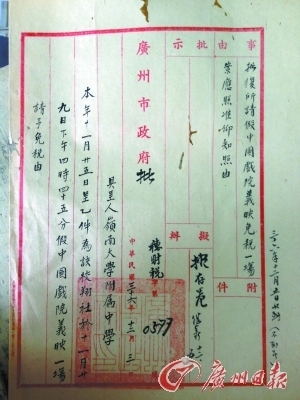 事由
批復所請假中國戲院義映免稅一場
業應照准仰知照由
附件
批示
擬辦
擬存卷
廣州市政府批
穗財稅字第
號
中華民國三六年十二月三
具呈人嶺南大學附屬中學
本年十一月廿五日呈乙件為該校翔社於十一月廿
九日下午四時四十五分假中國戲院義映一場
請予免稅由
广州日报